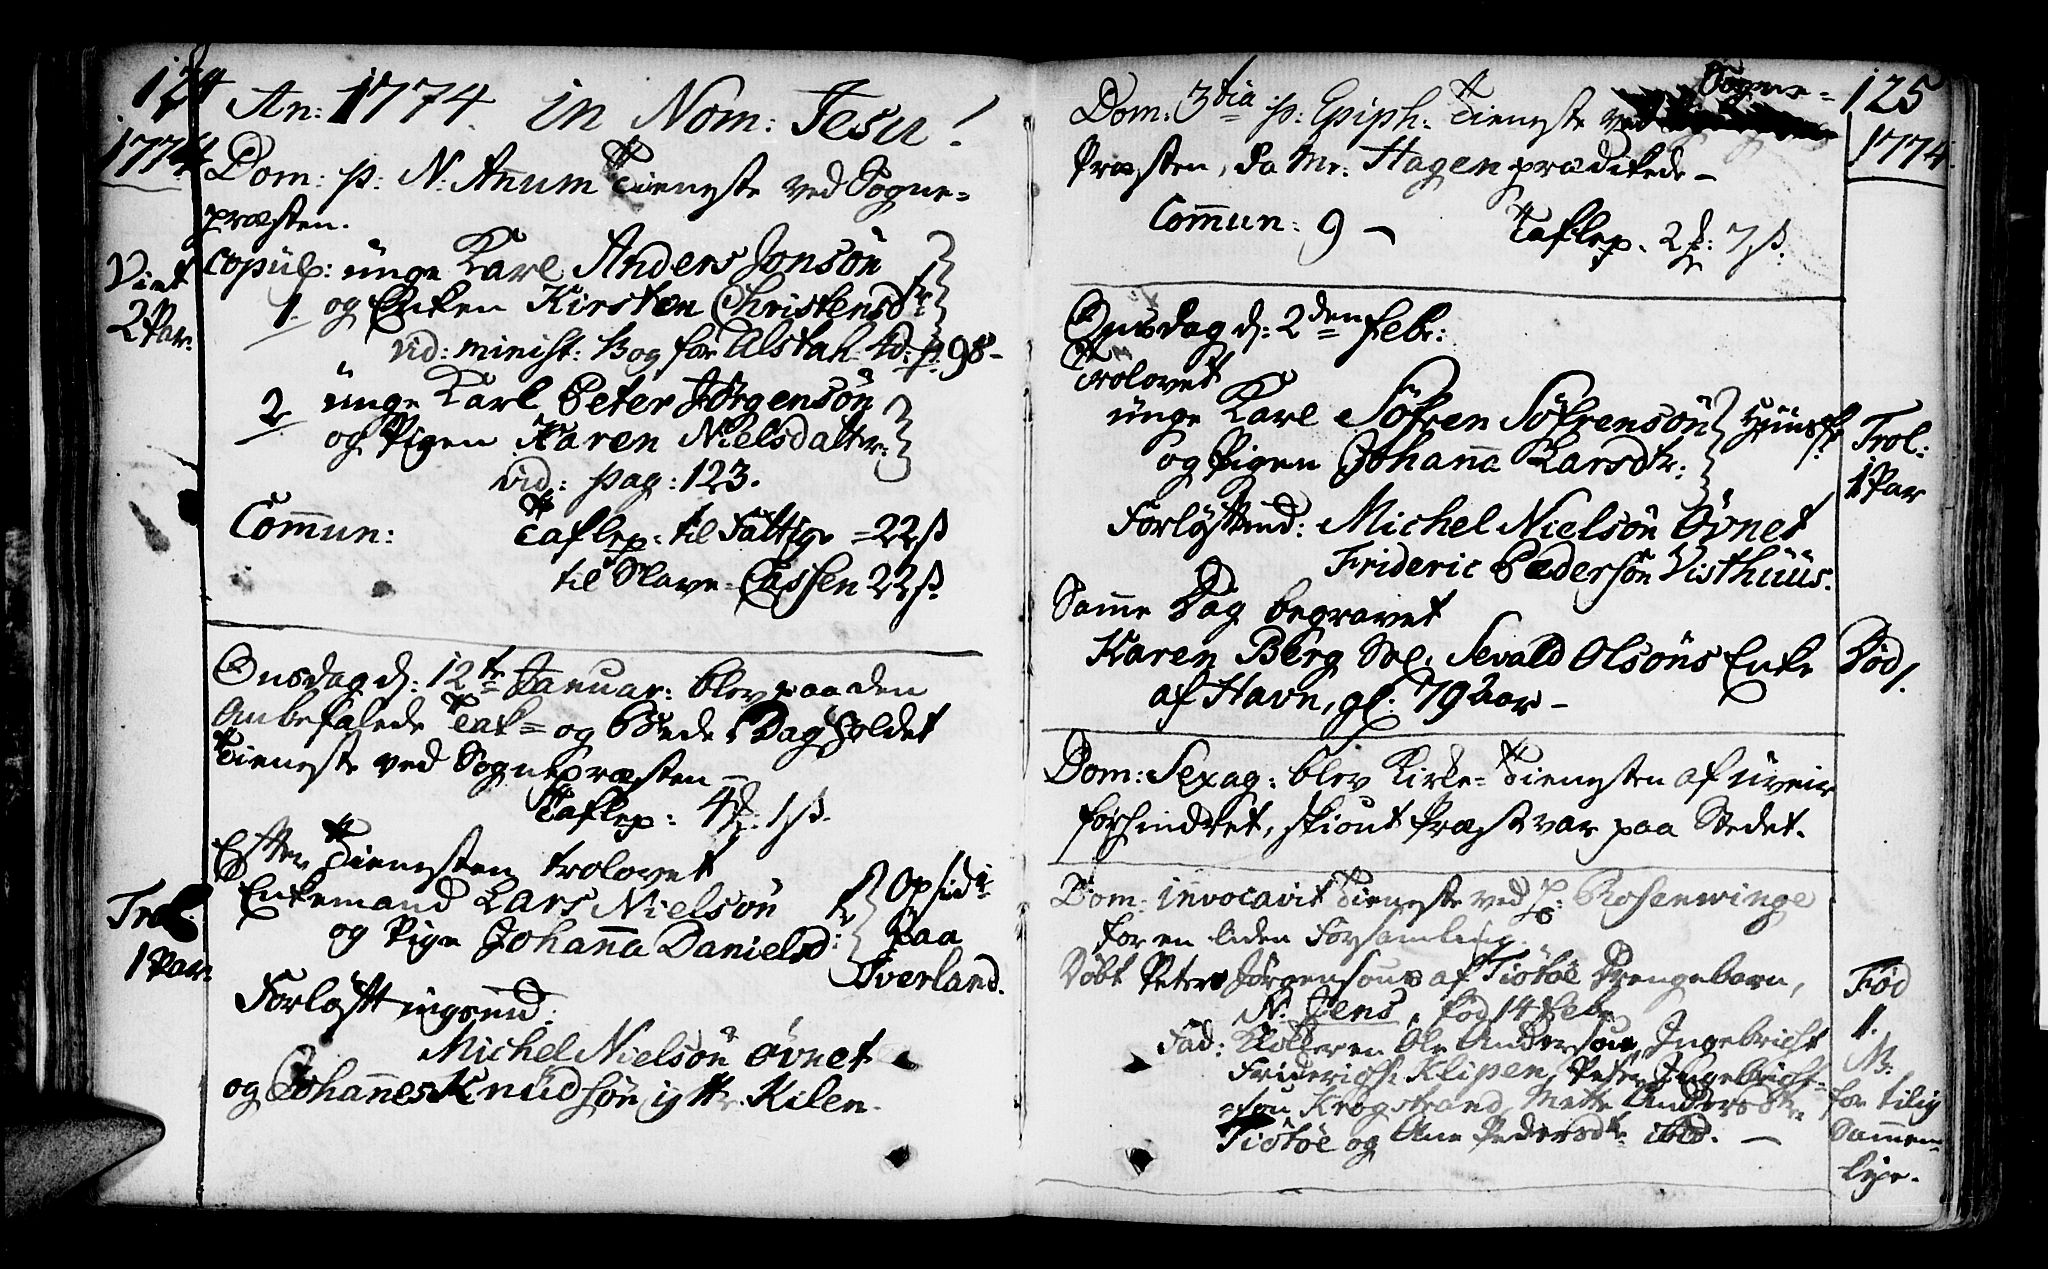 124
An: 1774 in Nom: Jesu!
1774
Dom: p: N: Anum Tieneste ved Sogne-
præsten.
Viet
2 Par.
Copul: unge Karl Anders Jonsøn
1. og Enken Kirsten Christensdr
vid: minist: Bog for Alstah: p: 98-
2 unge Karl Peter Jørgensøn
og Pigen Karen Nielsdattr:
vid: pag: 123.
Commun: Taflep. til Fattige =22 ß
til Slave-Cassen 22 ß.
Onsdag d: 12te Januar: blev paa den
Anbefalede Tak= og Bede Dag Holdet
Tieneste ved Sognepræsten -
Taflep: 4 : 1 ß.
Efter Tienesten trolovet
Trol.
1 Par.
Enkemand Lars Nielsøn
og Pige Johanna Danielsd:
Opsidr
paa
Overland.
Forløfttningsmd:
Michel Nielsøn Øvnet
og Johannes Knudsøn Kilen.
125
1774.
Dom: 3tia p: Epiph: Tieneste ved Sogne-
Præsten, da Mr: Hagen prædikede -
Commun: 9 - Taflep. 2 : 7 ß.
Onsdag d: 2den Febr:
Trolovet
unge Karl Söfren Söfrensøn
og Pigen Johanna Larsdtr:
Trol:
1 Par
Forløftmd: Michel Nielsøn Øvnet
Frideric Pedersøn Visthuus.
Samme Dag begravet
Karen Berg Sal. Sevald Olsøns Enke
af Havn, gl: 79 aar -
Død 1.
Dom: Sexag: blev Kirke-Tienesten af uveir
forhindret, skiønt Præst var paa Stedet.
Dom: invocavit Tieneste ved Hr: Rosenwinge
for en liden Forsamling.
Døbt Peter Jørgensøns af Tiötöe Drengebarn,
N. Jens, fød 14 Febr.
Fød
1.
Fad: Ole Andersøn, Ingebricht
Friderichs: Klipen, Peter Ingebricht-
søn Krogstrand, Mette Andersdtr
Tiötöe og Ane Pedersdtr ibid. -
M:
for tilig
Sammen-
leje.